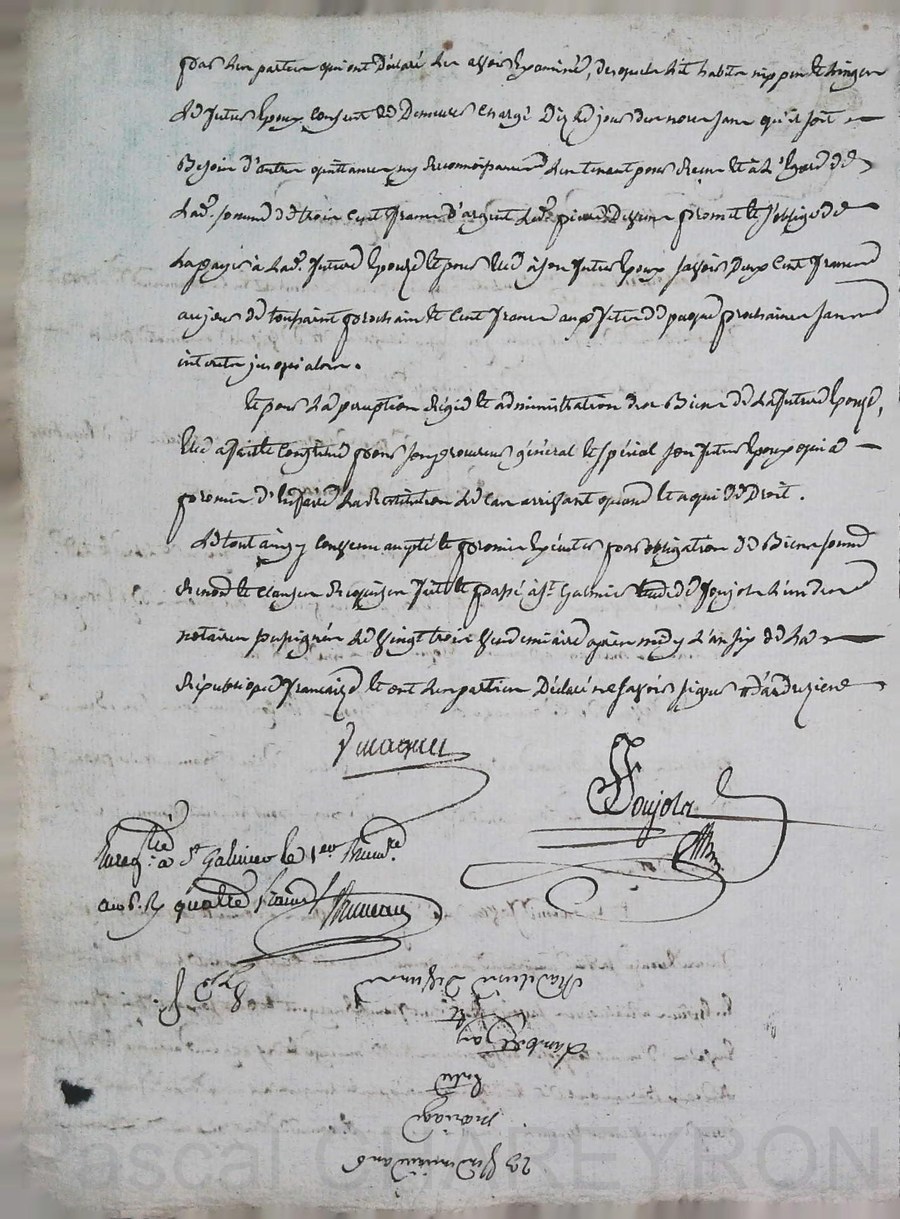 par les parties qui ont déclaré les avoir examiné, desquels dit habits nippes et linges
le futur époux consent de demeurer chargé dez le jour des noces sans qu'il soit
besoin d'autres quittances ny reconnoissances les tenant pour reçu et à l'égard de
lad. somme de trois cent francs d'argent led. promet et s'oblige de
la payer à lad. future épouse et pour elle à son futur époux savoir deux cent francs
au jour de toussaint prochain et cent francs aux fêtes de paques prochaines sans
interets jusqu'alors.
et pour la perception régie et administration des biens de la future épouse,
elle a fait et constitué pour son procureur général et spécial son futur époux qui a
promis d'en faire la restitution le cas arrivant quand et a qui de droit.
le tout ainsy convenu accepté et promis exécuter par obligation de biens soumis
renonce et clauses requises fait et passé à St. Galmier étude de Soujola l'un des
notaires soussignés le vingt trois vendemiaire après midy l'an six de la
République française et ont les parties déclaré ne savoir signer
Soujola
Enregtré à St Galmier le 1er Brum.re
an 6. R quatre francs
Madelaine
et
mariage
23 vendemiaire an 6
Pascal CHAREYRON